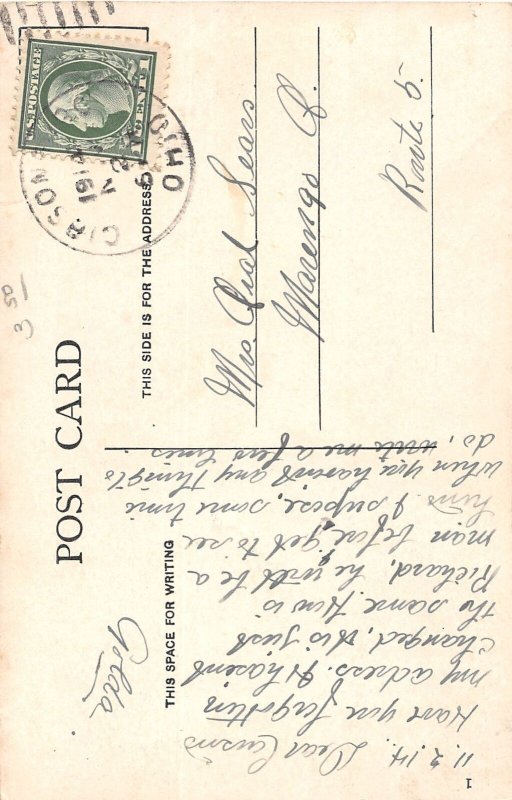 POST CARD
THIS SPACE FOR WRITING
THIS SIDE IS FOR THE ADDRESS
U.S. POSTAGE
OHIO
1 50
3
11.2.14.
Dear Cusins
Have you forgottin
my adress. It hasent
changed, it is just
the same. How is
Richard, he will be a
man before I get to see
him I supose, some time
when you havent any thing to
do, write me a few lines.
Golda
Mrs. Qual Sears.
Marengo O.
Route 5.
1